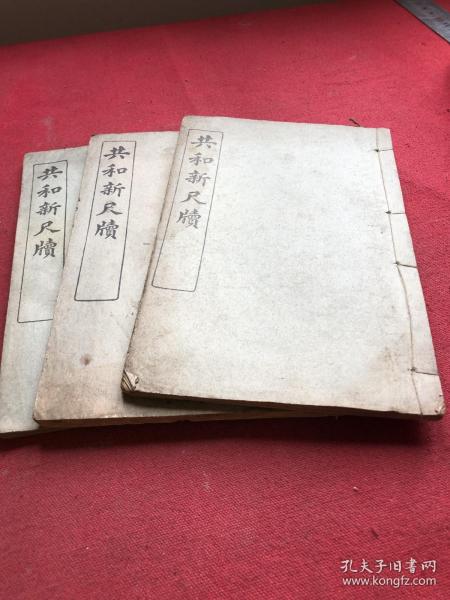 共和新尺牘
共和新尺牘
共和新尺牘
孔夫子旧书网
www.kongfz.com